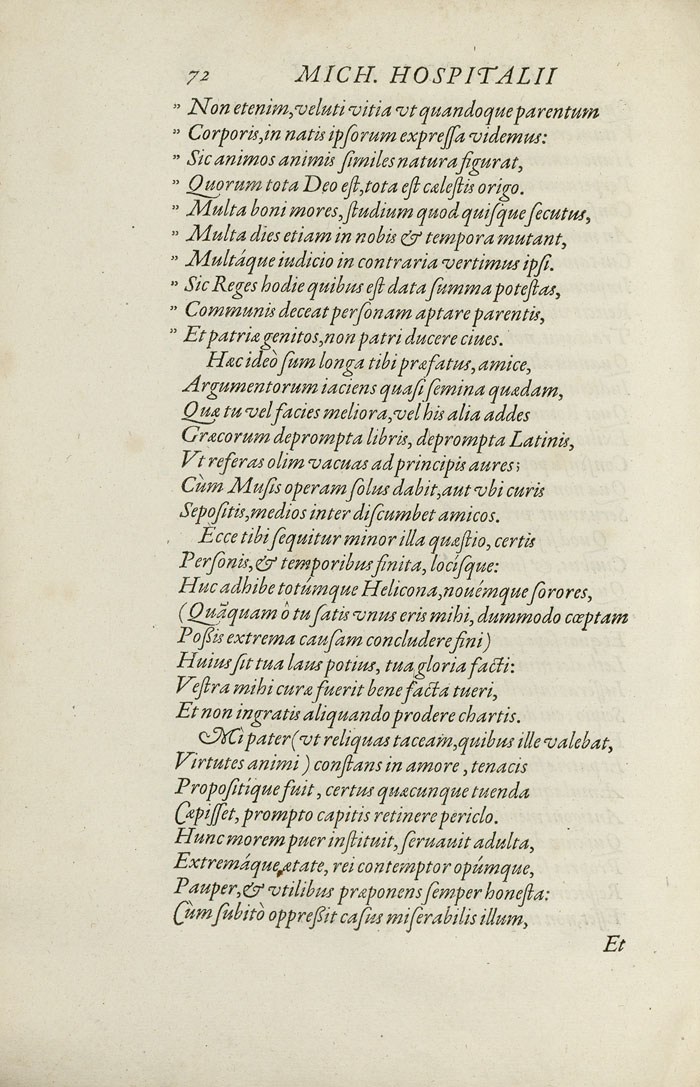 72 MICH. HOSPITALII
” Non etenim, veluti vitia vt quandoque parentum
” Corporis, in natis ipſorum expreſſa videmus:
” Sic animos animis ſimiles natura figurat,
” Quorum tota Deo eſt, tota eſt cæleſtis origo.
” Multa boni mores, ſtudium quod quiſque ſecutus,
” Multa dies etiam in nobis & tempora mutant,
” Multáque iudicio in contraria vertimus ipſi.
” Sic Reges hodie quibus eſt data ſumma poteſtas,
” Communis deceat perſonam aptare parentis,
” Et patriæ genitos, non patri ducere ciues.
Hæc ideò ſum longa tibi præfatus, amice,
Argumentorum iaciens quaſi ſemina quædam,
Quæ tu vel facies meliora, vel his alia addes
Græcorum deprompta libris, deprompta Latinis,
Vt referas olim vacuas ad principis aures;
Cùm Muſis operam ſolus dabit, aut vbi curis
Sepoſitis, medios inter diſcumbet amicos.
Ecce tibi ſequitur minor illa quæſtio, certis
Perſonis, & temporibus finita, lociſque:
Huc adhibe totúmque Helicona, nouémque ſorores,
(Quãquam ô tu ſatis vnus eris mihi, dummodo cœptam
Poßis extrema cauſam concludere fini)
Huius ſit tua laus potius, tua gloria facti:
Veſtra mihi curæ fuerit bene facta tueri,
Et non ingratis aliquando prodere chartis.
Mi pater (vt reliquas taceam, quibus ille valebat,
Virtutes animi) conſtans in amore, tenacis
Propoſitíque fuit, certus quæcunque tuenda
Cæpiſſet, prompto capitis retinere periclo.
Hunc morem puer inſtituit, ſeruauit adulta,
Extremáque ætate, rei contemptor opúmque,
Pauper, & vtilibus præponens ſemper honeſta:
Cùm ſubitò oppreßit caſus miſerabilis illum,
Et